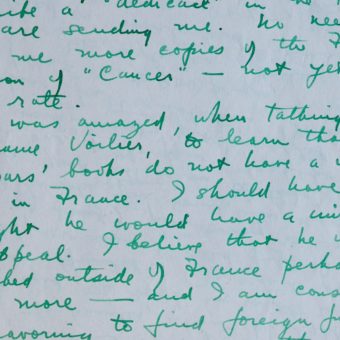 a "dedicace" in the
are sending me. No need
me more copies of the F
on of "Cancer" — not yet
rate.
was amazed, when talking
ame Voilier, to learn tha
ars' books do not have a w
in France. I should have
ght he would have a uni
ppeal. I believe that he
bed outside of France perha
more — and I am cons
eavoring to find foreign pu